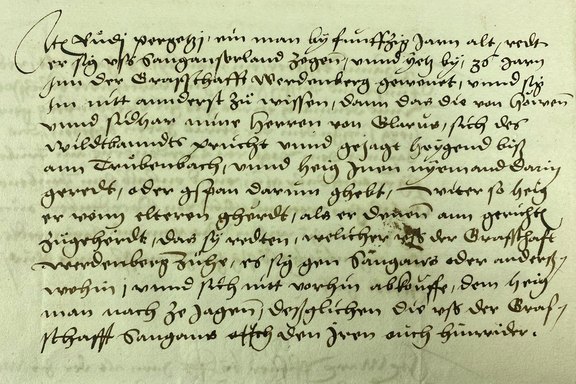 Itt Rudj pergetzi, ein man by funffzig Jarn alt, redt
er sig uss Sanganserland zogen, unnd yetz by, 36 Jarn
Inn der Graffschafft Werdenberg gewonet, unnd sig
Im nitt annderst zů wissen, dann das die von
unnd sidhar mine Herren von Glarus, sich des
wildtbanndts prucht unnd gejagt heygend biss
ann Trübenbach, unnd heig Inen nyemand darin
geredt, oder gspan darum ghebt, witer so heig
er vonn elteren ghördt, als er denen ann gericht
zůgehördt, das sy redten, welicher uss der Graffschaft
Werdenberg zühe, es sig gen Sangans oder anderss-
wohin, unnd sich nit vorhin abkouffe, dem heig
man nach ze jagen, dessglichen die uss der Graf-
schafft Sangans den Iren ouch hinwider.